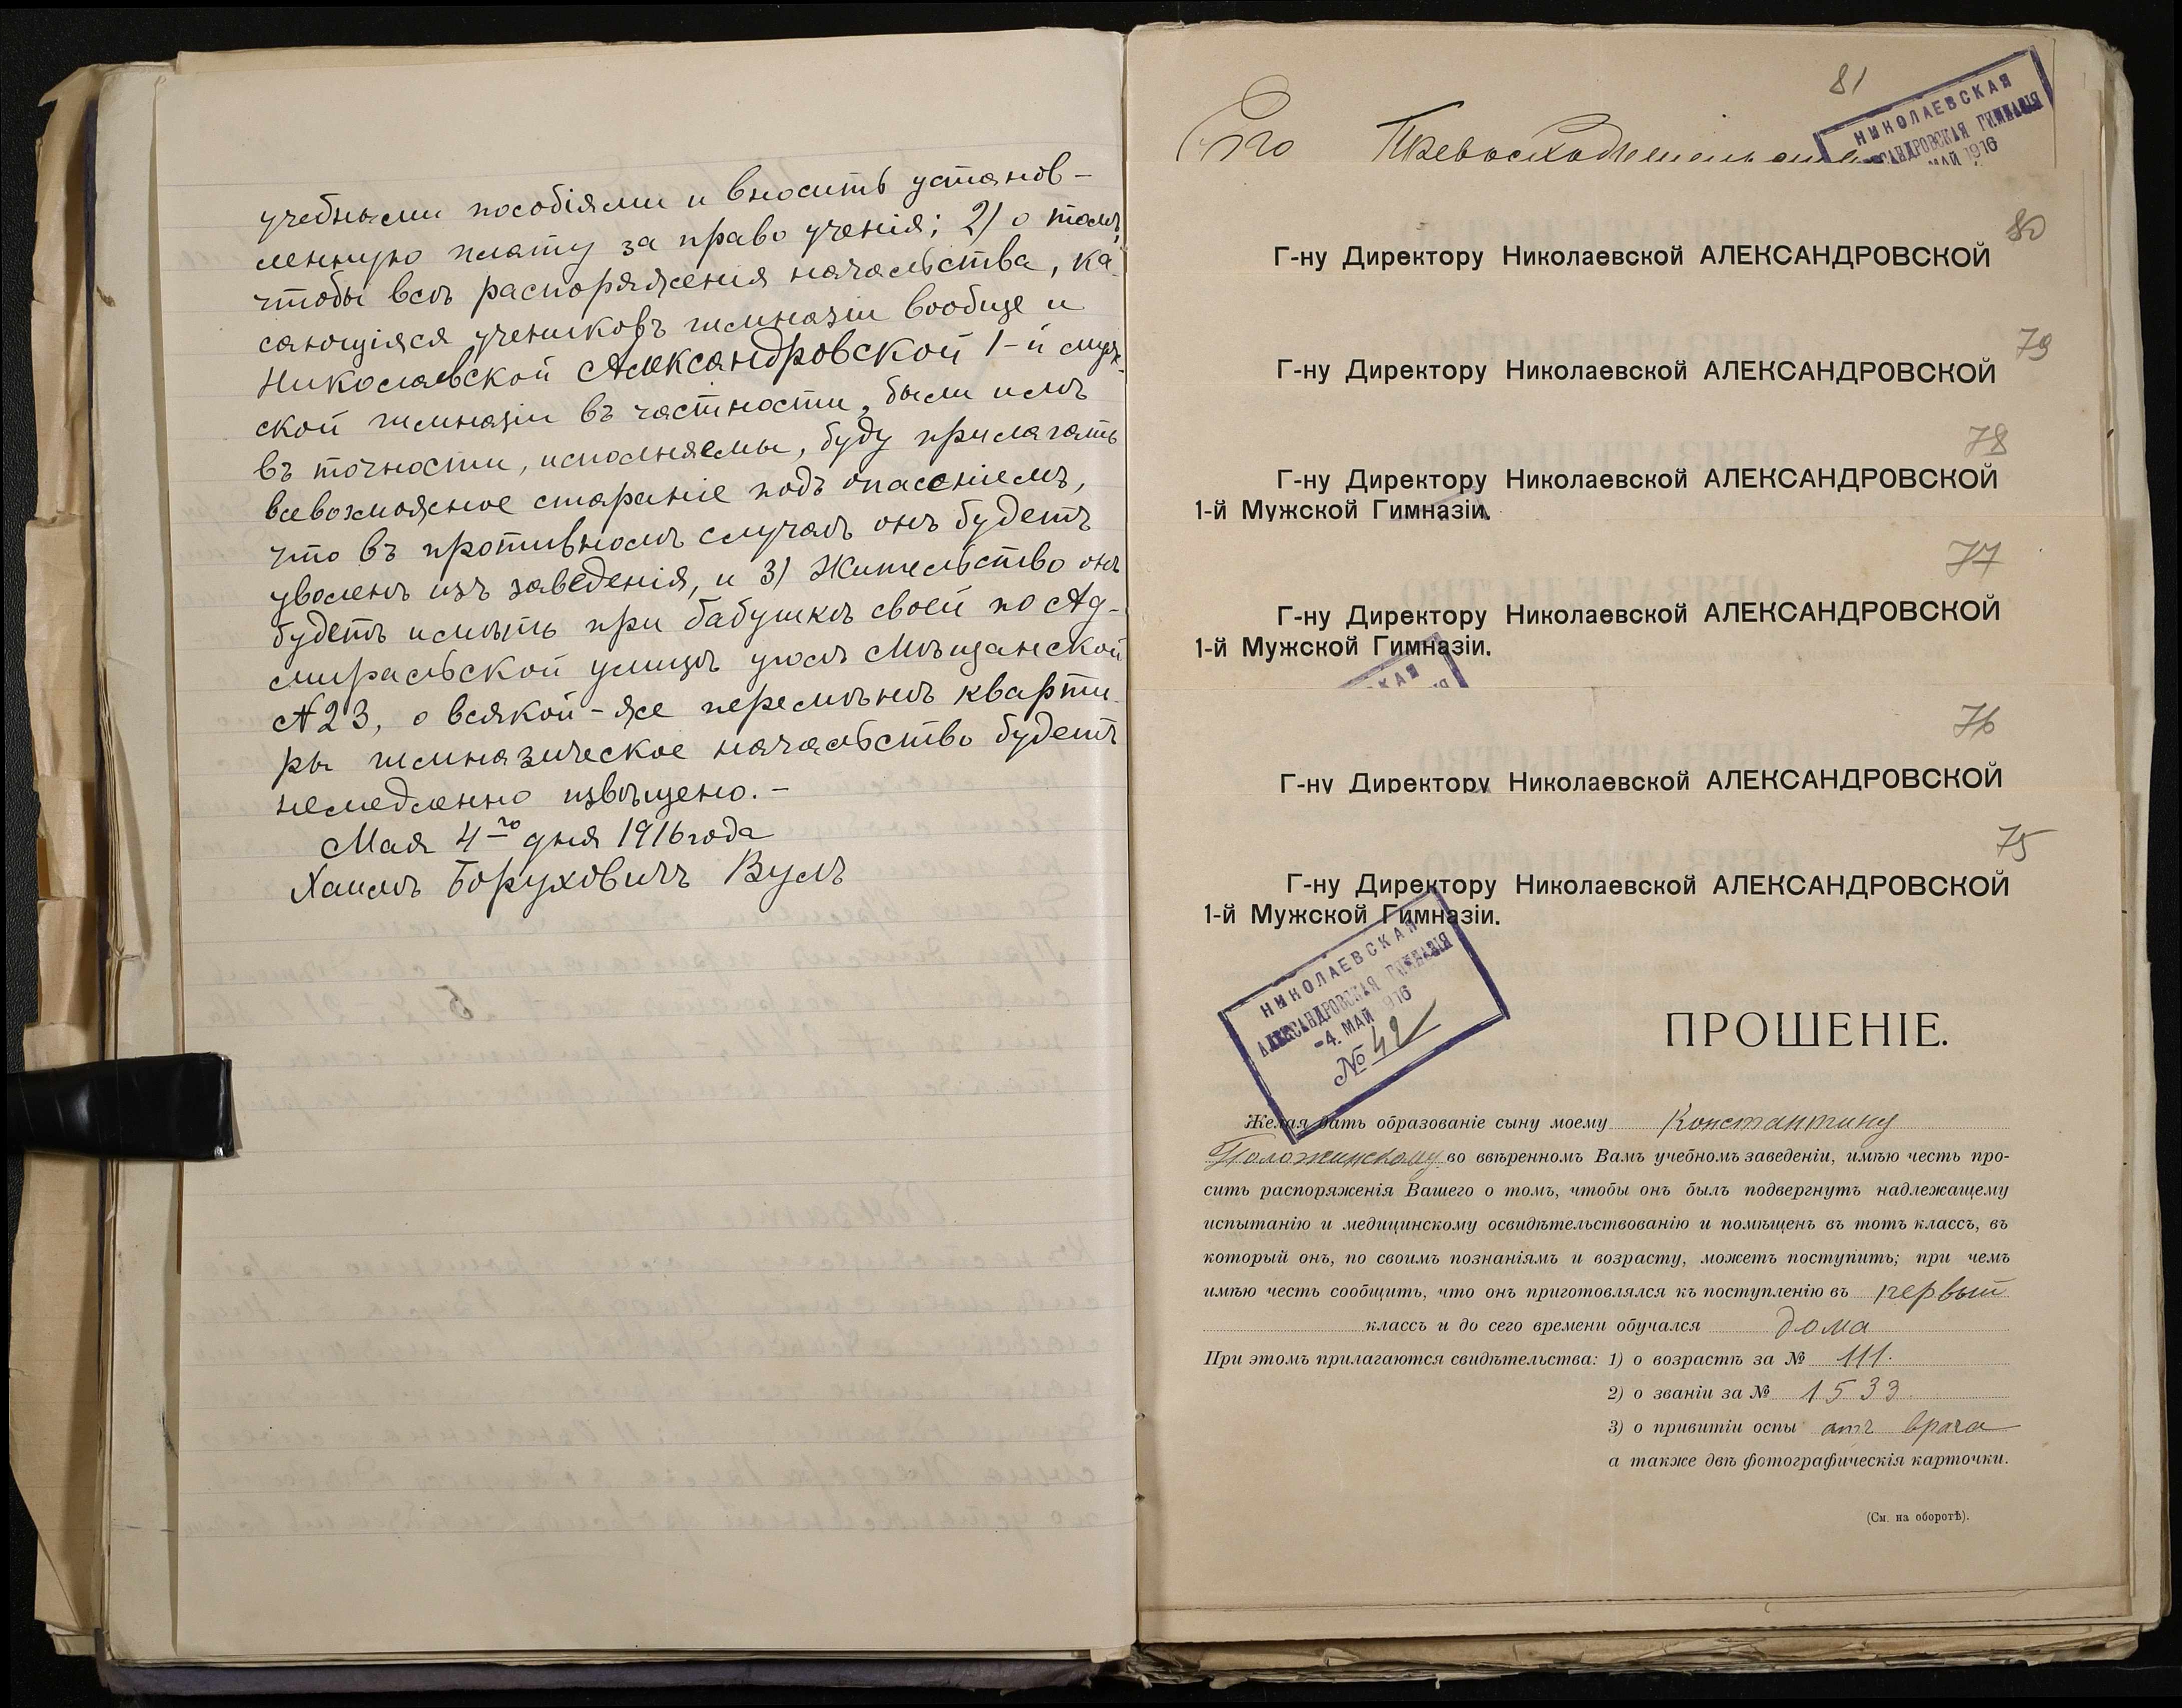 учебными пособіями и вносить установ-
ленную плату за право ученія; 2) о томъ,
чтобы всѣ распоряженія начальства, ка-
сающіяся учениковъ гимназіи вообще и
Николаевской Александровской 1-й муж-
ской гимназіи въ частности, были имъ
въ точности, исполняемы, буду прилагать
всевозможное стараніе подъ опасеніемъ,
что въ противномъ случаѣ онъ будетъ
уволенъ изъ заведенія, и 3) Жительство онъ
будетъ имѣть при бабушкѣ своей по Ад-
миральской улицѣ уголъ Мѣщанской
№23, о всякой-же перемѣнѣ кварти-
ры гимназическое начальство будетъ
немедленно извѣщено.-
Мая 4-го дня 1916 года
Хаимъ Боруховичъ Вулъ
81
Его Превосходительству
НИКОЛАЕВСКАЯ
АЛЕКСАНДРОВСКАЯ ГИМНАЗІЯ
МАЙ 1916
80
Г-ну Директору Николаевской АЛЕКСАНДРОВСКОЙ
79
Г-ну Директору Николаевской АЛЕКСАНДРОВСКОЙ
78
Г-ну Директору Николаевской АЛЕКСАНДРОВСКОЙ
1-й Мужской Гимназіи.
77
Г-ну Директору Николаевской АЛЕКСАНДРОВСКОЙ
1-й Мужской Гимназіи.
76
Г-ну Директору Николаевской АЛЕКСАНДРОВСКОЙ
75
Г-ну Директору Николаевской АЛЕКСАНДРОВСКОЙ
1-й Мужской Гимназіи.
НИКОЛАЕВСКАЯ
АЛЕКСАНДРОВСКАЯ ГИМНАЗІЯ
-4. МАЙ 1916
№ 42
ПРОШЕНІЕ.
Желая дать образованіе сыну моему Константину
Положинскому во ввѣренномъ Вамъ учебномъ заведеніи, имѣю честь про-
сить распоряженія Вашего о томъ, чтобы онъ былъ подвергнутъ надлежащему
испытанію и медицинскому освидѣтельствованію и помѣщенъ въ тотъ классъ, въ
который онъ, по своимъ познаніямъ и возрасту, можетъ поступить; при чемъ
имѣю честь сообщить, что онъ приготовлялся къ поступленію въ первый
классъ и до сего времени обучался дома
При этомъ прилагаются свидѣтельства: 1) о возрастѣ за № 111.
2) о званіи за № 1533.
3) о привитіи оспы отъ врача
а также двѣ фотографическія карточки.
(См. на оборотѣ).